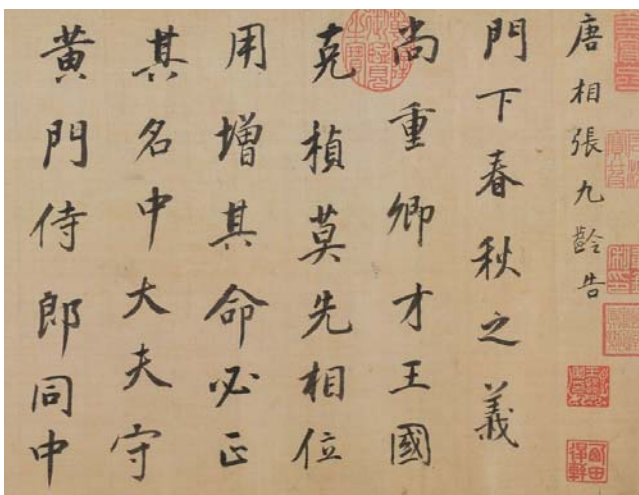 唐相張九齡告
門下春秋之義
尚重卿才王國
克楨莫先相位
用增其命必正
其名中大夫守
黃門侍郎同中